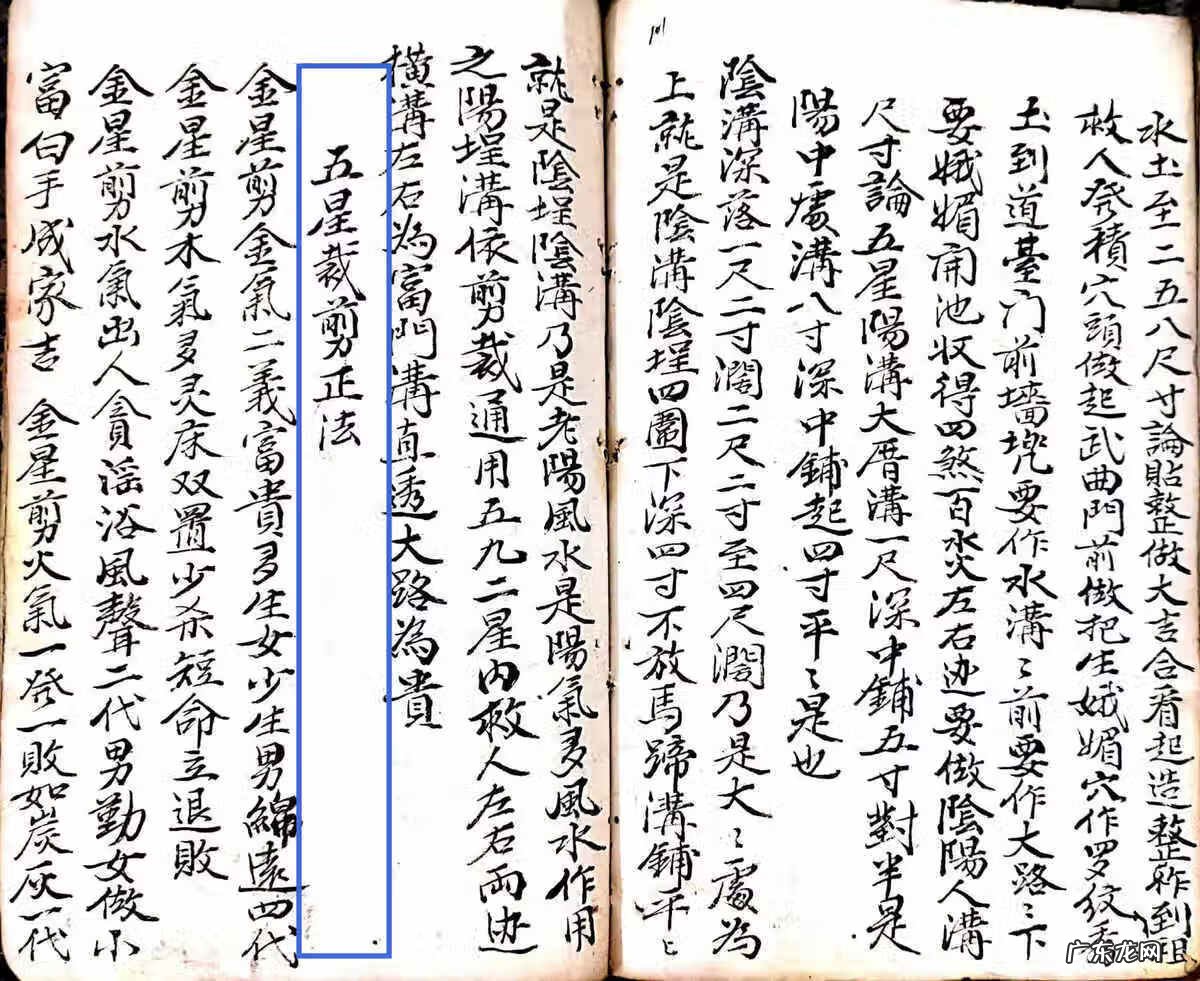 水土至二五八尺寸論貼整做大吉合看起造整祚到祖
救人発積穴頭做起武曲門前做把生娥媚穴作罗紋
土到道臺门前墻垗要作水溝〻前要作大路〻下
要娥媚開池収得四煞百水火左右边要做陰陽人溝
尺寸論五星陽溝大厝溝一尺深中鋪五寸對半是
陽中處溝八寸深中鋪起四寸平〻是也
陰溝深落一尺二寸濶二尺二寸至四尺濶乃是大〻處為
上就是陰溝陰埕四圍下深四寸不放馬蹄溝鋪平〻
101
就是陰埕陰溝乃是老陽風水是陽氣多風水作用
之陽埕溝依剪裁通用五九二星内救人左右兩边
横溝左右為富門溝直透大路為貴
五星裁剪正法
金星剪金氣二義富貴多生女少生男綿遠四代
金星剪木氣多灵床双置少杀短命立退敗
金星剪水氣出人貪滛浴風聲二代男勤女做小
富白手成家吉 金星剪火氣一発一敗如炭灰一代
广东龙网